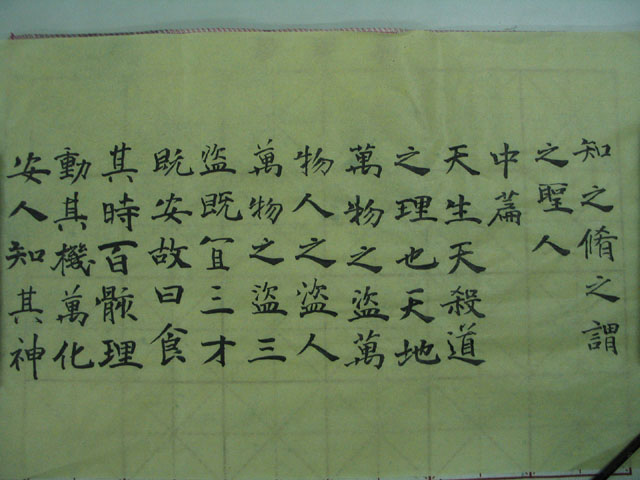 知之脩之謂
之聖人
中篇
天生天殺道
之理也天地
萬物之盜萬
物人之盜人
萬物之盜三
盜既宜三才
既安故曰食
其時百骸理
動其機萬化
安人知其神